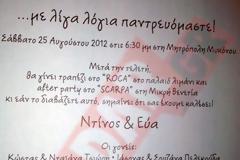 ...με λίγα λόγια παντρευόμαστε!
Σάββατο 25 Αυγούστου 2012 στις 6:30 μμ στη Μητρόπολη Μυκόνου.
Μετά την τελετή,
θα γίνει τραπέζι στο "ROCA" στο παλαιό λιμάνι και
after party στο "SCARPA" στη Μικρή Βενετία
κι εάν το διαβάζετε αυτό, σημαίνει ότι σας έχουμε καλέσει!
Ντίνος & Εύα
Οι γονείς:
Κώστας &